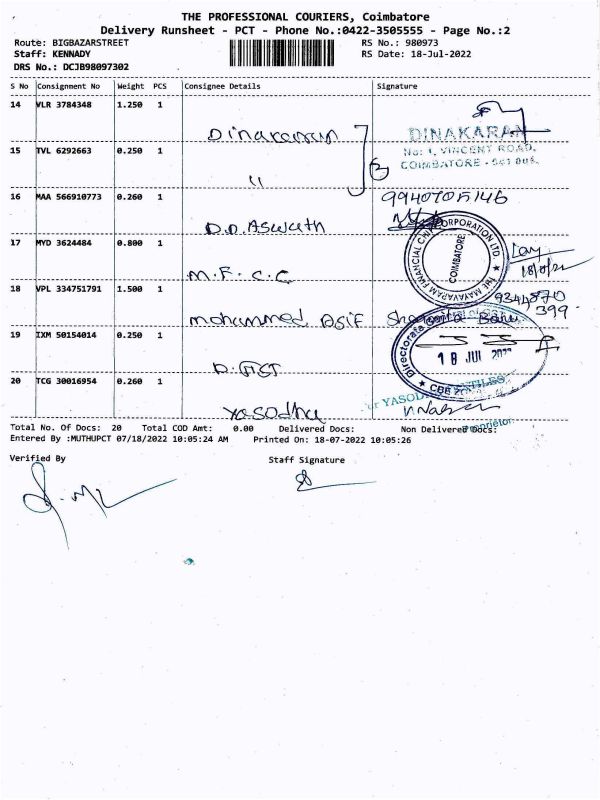 THE PROFESSIONAL COURIERS, Coimbatore
Delivery Runsheet - PCT - Phone No.:0422-3505555 - Page No.:2
Route: BIGBAZARSTREET RS No.: 980973
Staff: KENNADY RS Date: 18-Jul-2022
DRS No.: DCJB98097302
S No Consignment No Weight PCS Consignee Details Signature
14 VLR 3784348 1.250 1
Dinakaran DINAKARAN
No: 1, VINCENT ROAD,
COIMBATORE - 641 001.
15 TVL 6292663 0.250 1
"
16 MAA 566910773 0.260 1
D.D. Aswath
17 MYD 3624484 0.800 1
THE MAYAVARAM FINANCIAL CHIT CORPORATION LTD. ★
COIMBATORE
M.F.C.C
18 VPL 334751791 1.500 1
mohammed Asif
9344870
399
19 IXM 50154014 0.250 1
Directorate General of
18 JUL 2022
D.GST
20 TCG 30016954 0.260 1
Yasodha
Total No. Of Docs: 20 Total COD Amt: 0.00 Delivered Docs: Non Delivered Docs:
Proprietor
Entered By :MUTHUPCT 07/18/2022 10:05:24 AM Printed On: 18-07-2022 10:05:26
Verified By Staff Signature